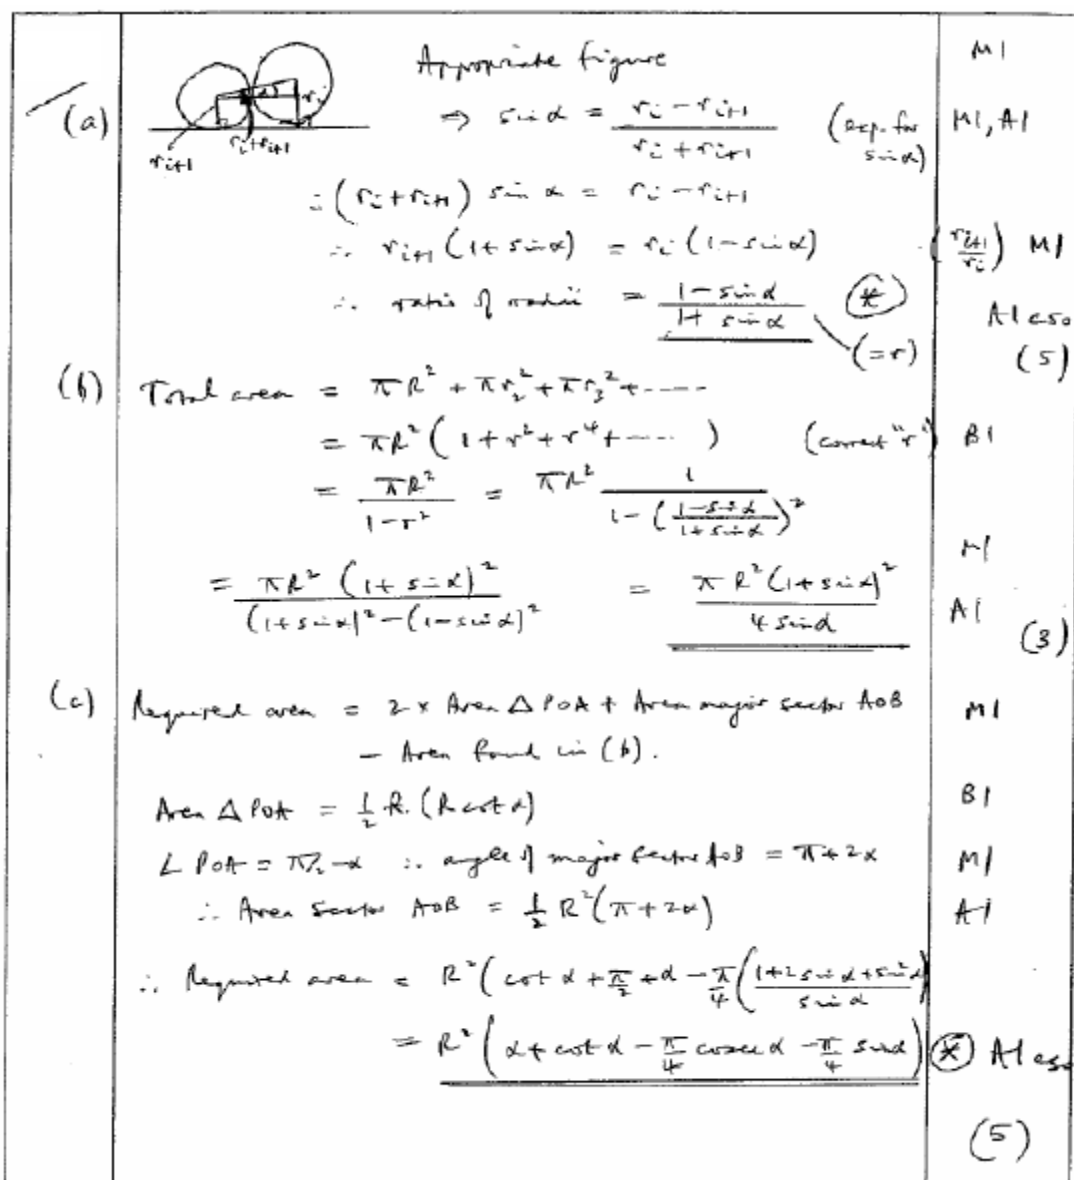 Appropriate figure M1
(a) ⇒ sin α = (rᵢ - rᵢ₊₁)/(rᵢ + rᵢ₊₁) (exp. for sin α) M1, A1
rᵢ₊₁ rᵢ+rᵢ₊₁ rᵢ α
∴ (rᵢ + rᵢ₊₁) sin α = rᵢ - rᵢ₊₁
∴ rᵢ₊₁ (1 + sin α) = rᵢ (1 - sin α) (rᵢ₊₁/rᵢ) M1
∴ ratio of radii = (1 - sin α)/(1 + sin α) (*) A1 cso
(= r) (5)
(b) Total area = πR² + πr₂² + πr₃² + -----
= πR² (1 + r² + r⁴ + ---- ) (correct "r") B1
= πR²/(1 - r²) = πR² 1/(1 - ((1 - sin α)/(1 + sin α))²)
M1
= πR² (1 + sin α)²/((1 + sin α)² - (1 - sin α)²) = πR² (1 + sin α)²/(4 sin α) A1 (3)
(c) Required area = 2 × Area △ POA + Area major sector AOB M1
- Area found in (b).
Area △ POA = ½ R. (R cot α) B1
∠ POA = π/2 - α ∴ angle of major sector AOB = π + 2α M1
∴ Area sector AOB = ½ R² (π + 2α) A1
∴ Required area = R² (cot α + π/2 + α - π/4 ((1 + 2 sin α + sin² α)/sin α)
= R² (α + cot α - π/4 cosec α - π/4 sin α) (*) A1 cso
(5)